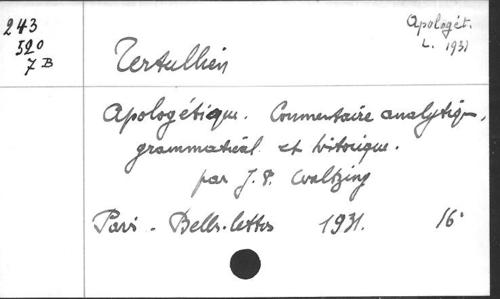 243
520
7 B
Apologét.
L. 1931
Tertullien
Apologétique. Commentaire analytiq.,
grammatical et historique.
par J. P. Waltzing
Paris - Belles-lettres 1931. 16°